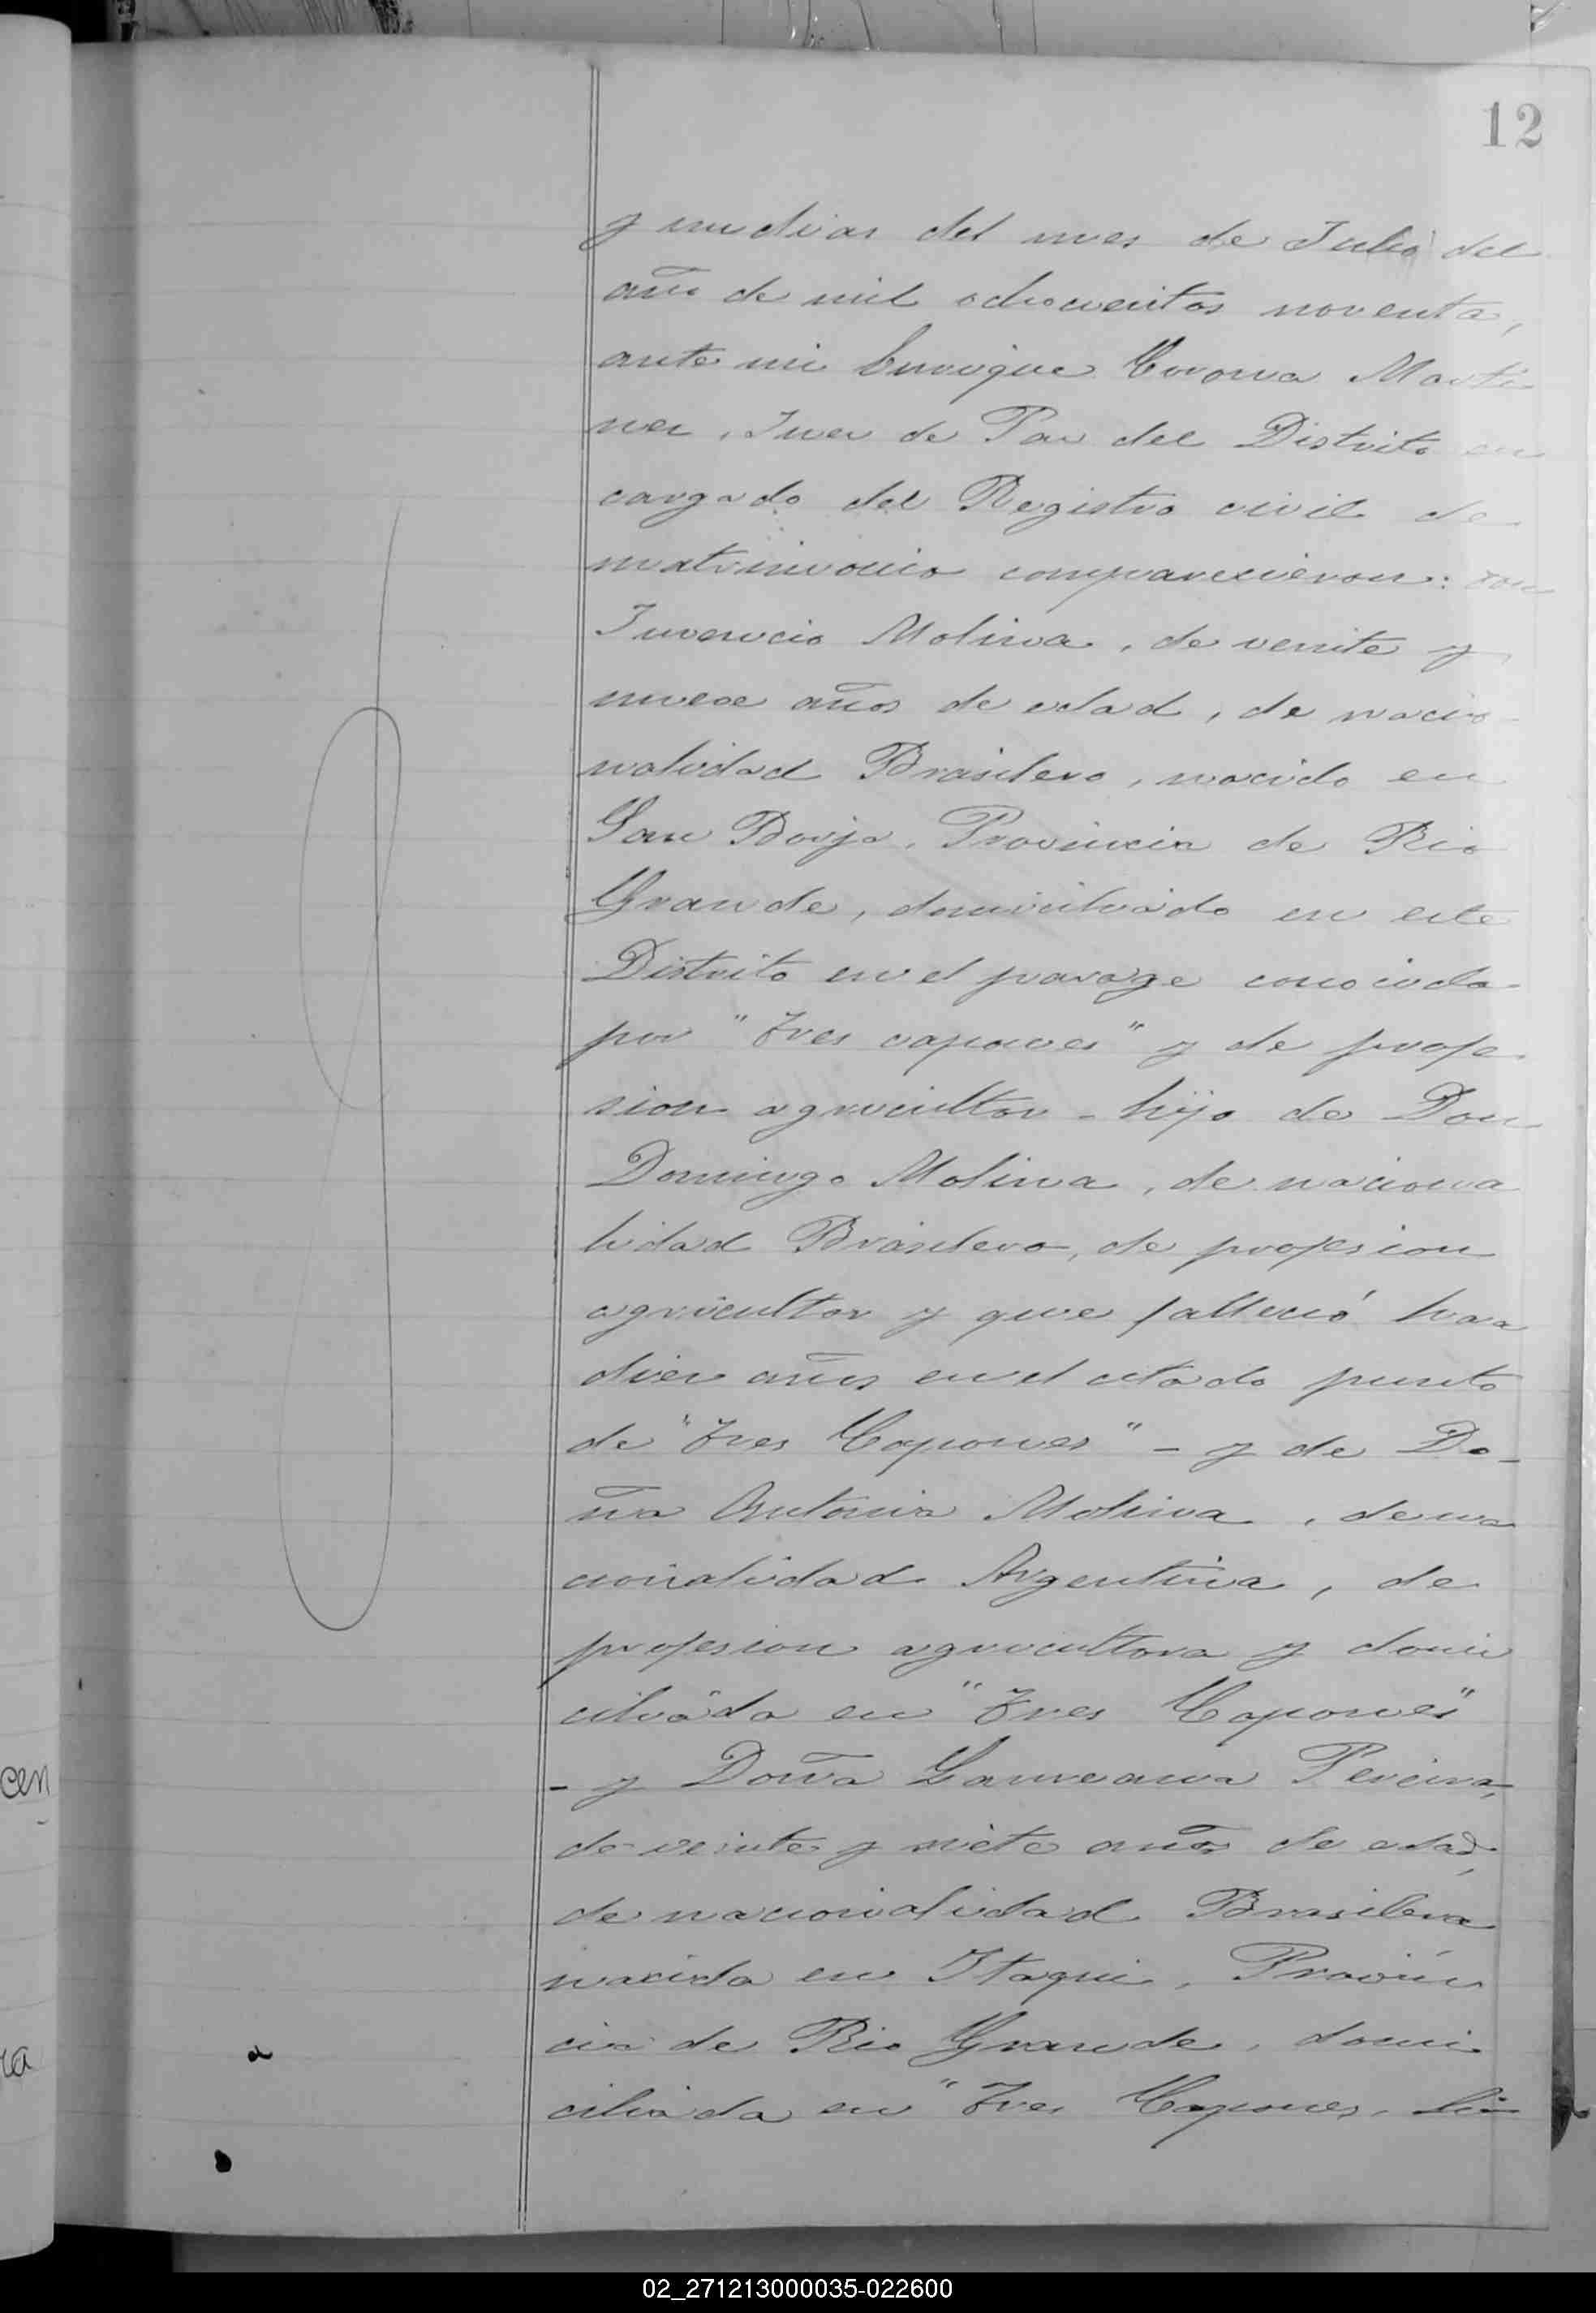 12
y un dias del mes de Julio del
año de mil ochocientos noventa,
ante mi Enrique Corona Marti
nez, Juez de Paz del Distrito en
cargado del Registro civil de
matrimonio comparecieron: don
Juvencio Molina, de veinte y
nueve años de edad, de nacio
nalidad Brasilero, nacido en
San Borja, Provincia de Rio
Grande, domiciliado en este
Distrito en el parage conocido
por "Tres capones" y de profe
sion agricultor - hijo de Don
Domingo Molina, de naciona
lidad Brasilero, de profesion
agricultor y que falleció hace
diez años en el citado punto
de "Tres Capones" - y de Do-
ña Antonia Molina, de na
cionalidad Argentina, de
profesion agricultora y domi
ciliada en "Tres Capones"
- y Doña Laureana Pereira,
de veinte y siete años de edad,
de nacionalidad Brasilera
nacida en Itaqui, Provin
cia de Rio Grande, domi
ciliada en "Tres Capones,
cen
ra
02_271213000035-022600